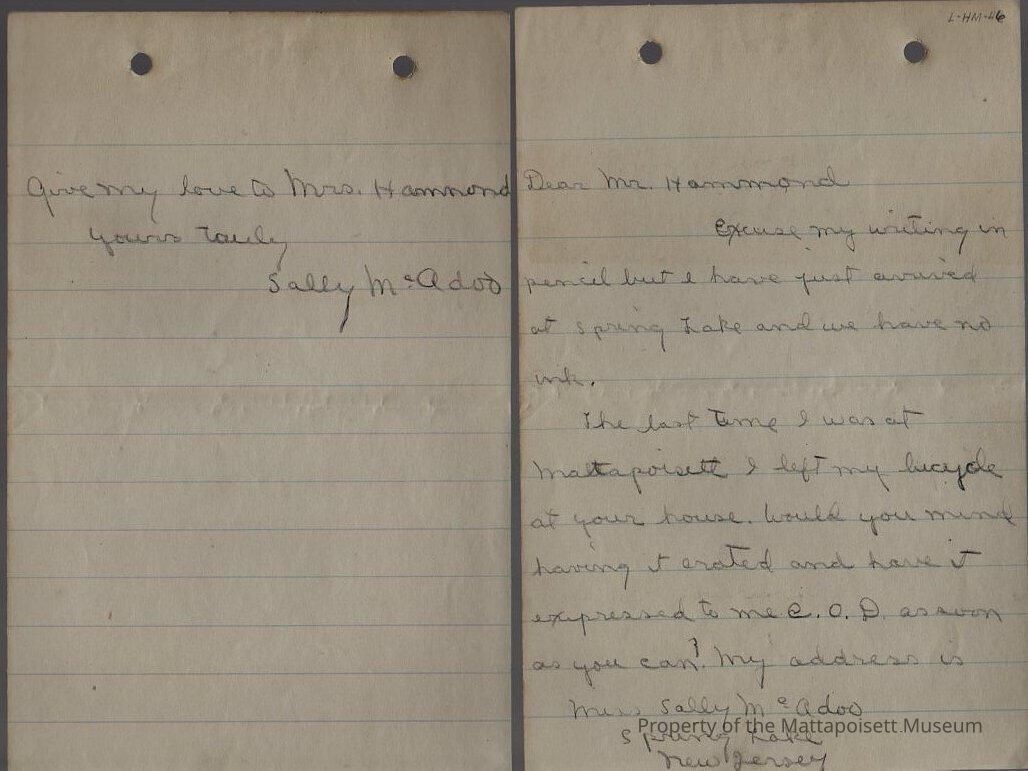 L-HM-46
Dear Mr. Hammond
Excuse my writing in
pencil but I have just arrived
at Spring Lake and we have no
ink.
The last time I was at
Mattapoisett I left my bicycle
at your house. Would you mind
having it crated and have it
expressed to me C.O.D. as soon
as you can? My address is
Miss Sally McAdoo
Spring Lake
New Jersey
Property of the Mattapoisett Museum
Give my love to Mrs. Hammond
Yours Truly
Sally McAdoo